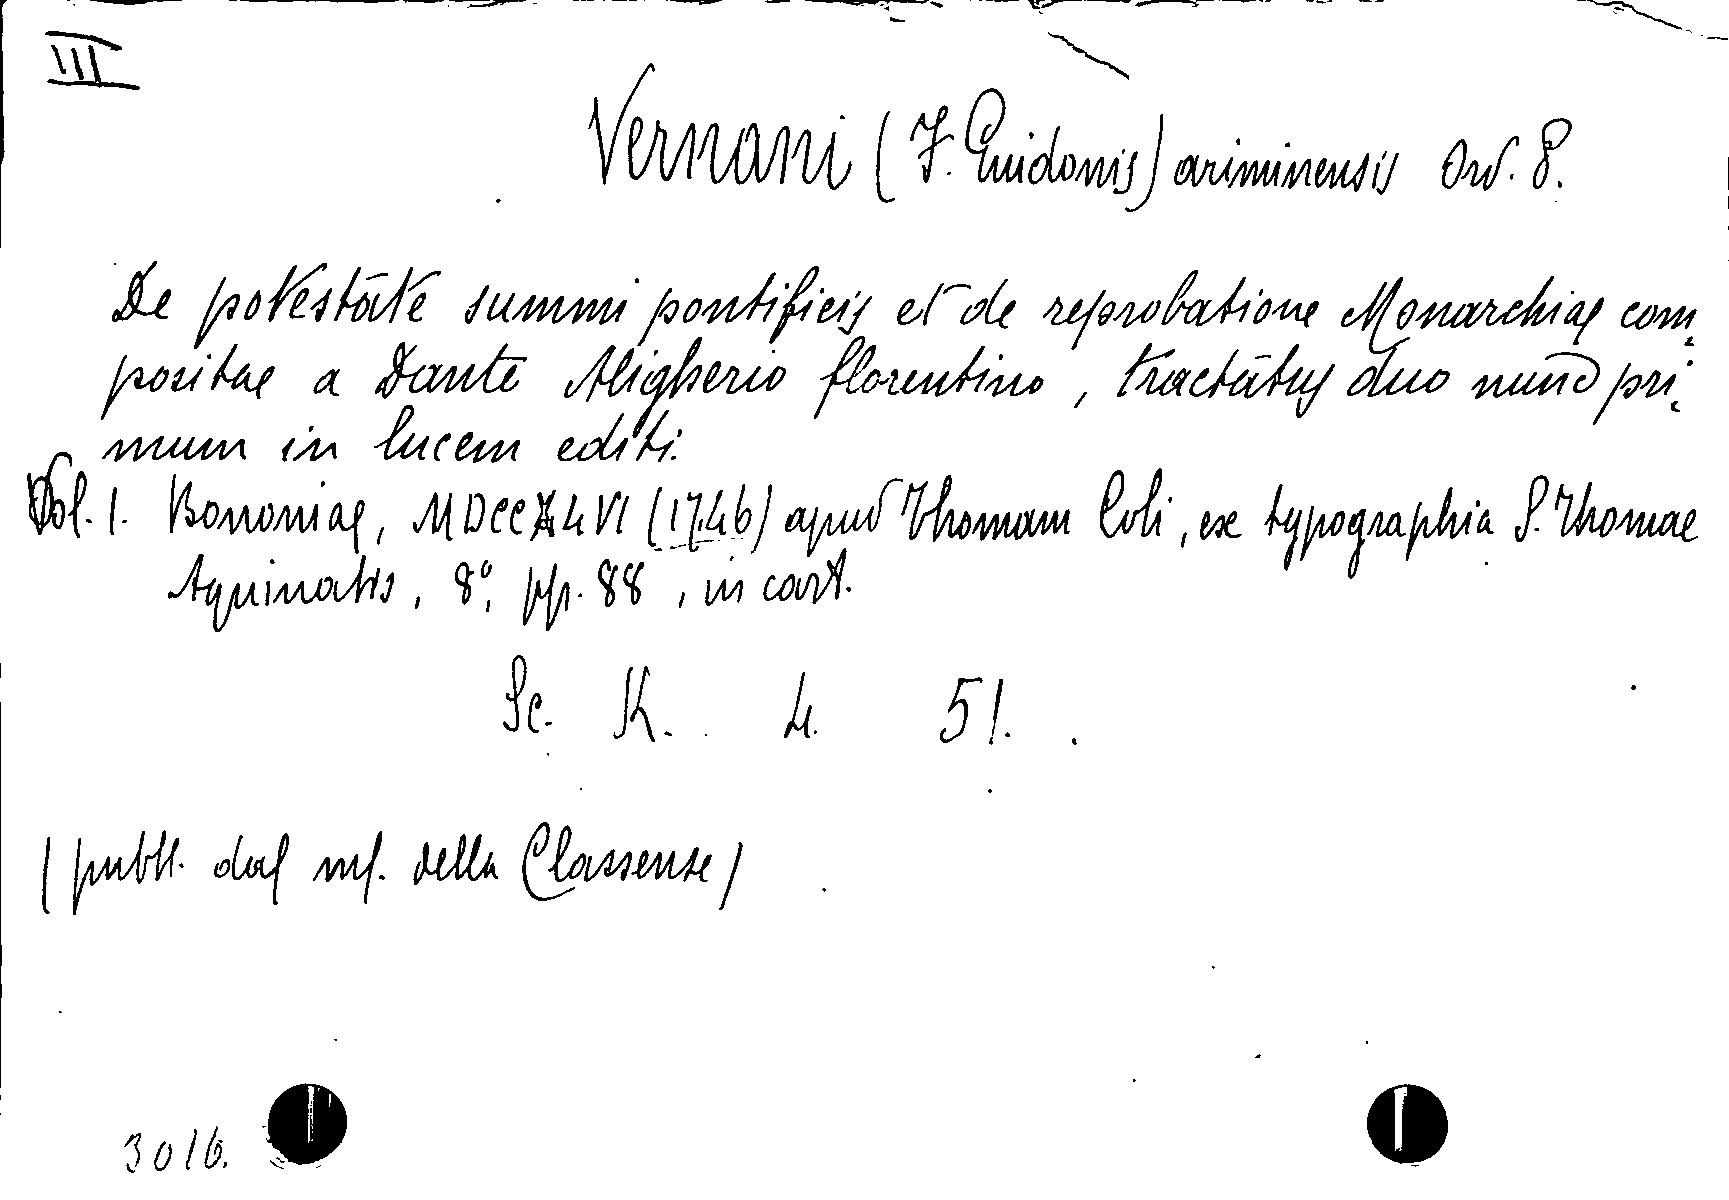 III
Vernani (F. Guidonis) ariminensis Ord. P.
De potestate summi pontificis et de reprobatione Monarchiae com,
positae a Dante Aligherio florentino, tractatus duo nunc pri,
mum in lucem editi.
Vol. 1. Bononiae, MDCCX4VI (1746) apud Thomam Coli, ex typographia S. Thomae
Aquinatis, 8°, pp. 88, in cart.
Sc. K. 4. 51.
(pubbl. dal ms. della Classense)
3016.